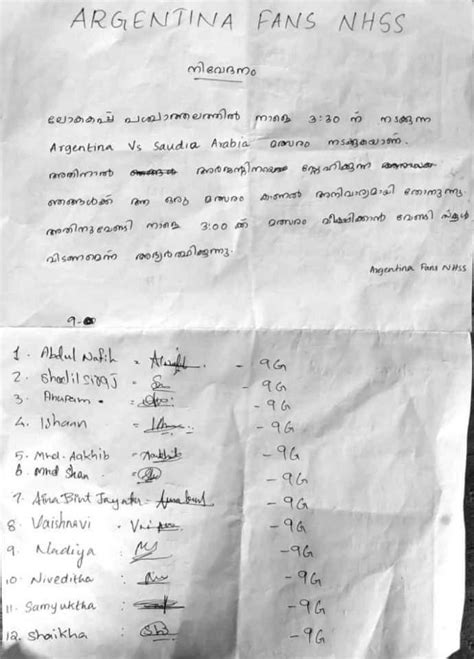 ARGENTINA FANS NHSS
നിവേദനം
ലോകകപ്പ് പശ്ചാത്തലത്തിൽ നാളെ 3:30 ന് നടക്കുന്ന
Argentina Vs Saudia Arabia മത്സരം നടക്കുകയാണ്.
അതിനാൽ അർജന്റീനയെ സ്നേഹിക്കുന്ന
ഞങ്ങൾക്ക് ആ ഒരു മത്സരം കാണൽ അനിവാര്യമായി തോന്നുന്നു.
അതിനുവേണ്ടി നാളെ 3:00 ക്ക് മത്സരം വീക്ഷിക്കാൻ വേണ്ടി സ്കൂൾ
വിടണമെന്ന് അഭ്യർത്ഥിക്കുന്നു.
Argentina Fans NHSS
1. Abdul Nafih - 9G
2. Shadil Siraj - 9G
3. - 9G
4. Ishaan - 9G
5. Mhd. Aakhib - 9G
6. Mhd Shan - 9G
7. Aina Bint - 9G
8. Vaishnavi - 9G
9. Nadiya : - 9G
10. Niveditha : - 9G
11. Samyuktha : - 9G
12. Shaikha : - 9G